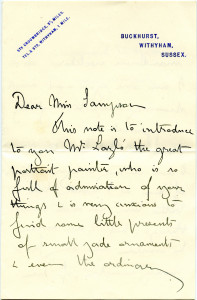 STN GROOMBRIDGE, 3½ MILES.
TEL & STN. WITHYHAM, 1 MILE.
BUCKHURST,
WITHYHAM,
SUSSEX.
Dear Miss Sampson
This note is to introduce
to you Mr Laszlo the great
portrait painter, who is so
full of admiration of your
things & is very anxious to
find some little presents
of small jade ornaments
& even the ordinary